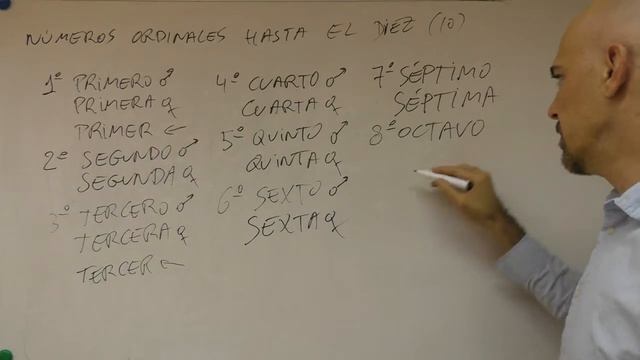 NÚMEROS ORDINALES HASTA EL DIEZ (10)
1º PRIMERO ♂
PRIMERA ♀
PRIMER ←
2º SEGUNDO ♂
SEGUNDA ♀
3º TERCERO ♂
TERCERA ♀
TERCER ←
4º CUARTO ♂
CUARTA ♀
5º QUINTO ♂
QUINTA ♀
6º SEXTO ♂
SEXTA ♀
7º SÉPTIMO
SÉPTIMA
8º OCTAVO